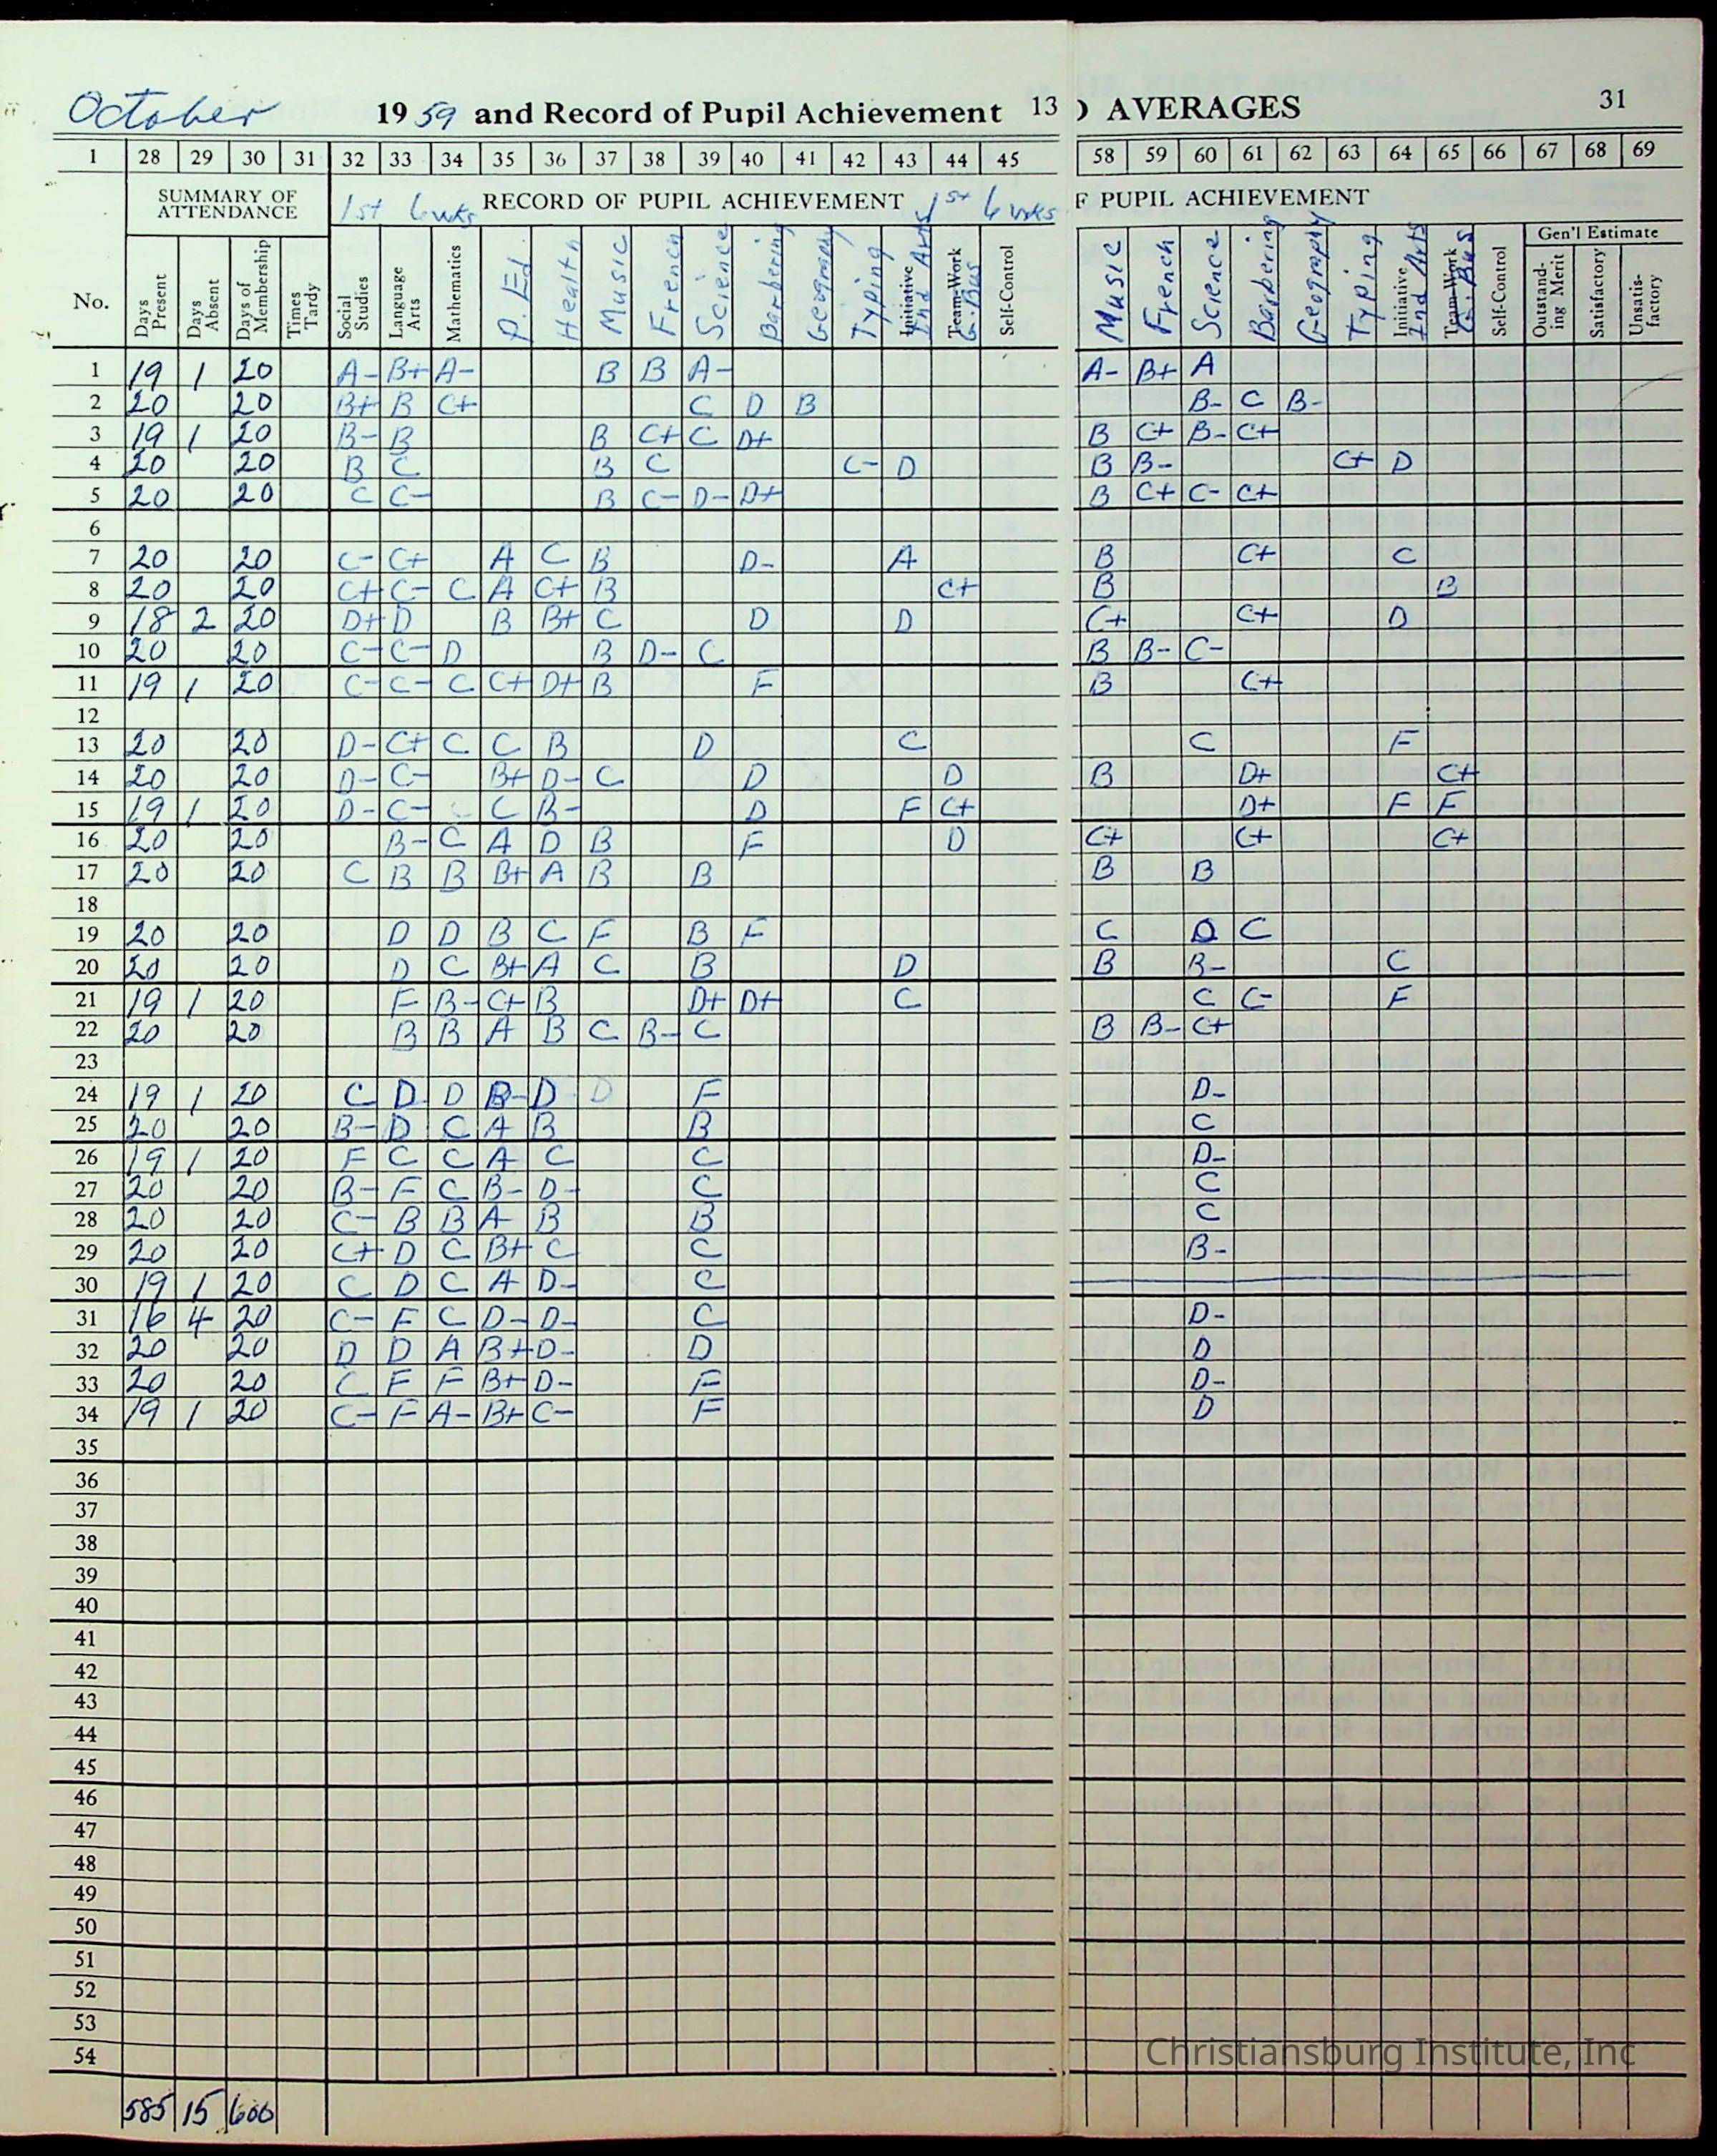 October 1959 and Record of Pupil Achievement 13 ) AVERAGES 31
1 28 29 30 31 32 33 34 35 36 37 38 39 40 41 42 43 44 45 58 59 60 61 62 63 64 65 66 67 68 69
SUMMARY OF ATTENDANCE 1st 6 wks RECORD OF PUPIL ACHIEVEMENT 1st 6 wks F PUPIL ACHIEVEMENT
Gen'l Estimate
No. Days Present Days Absent Days of Membership Times Tardy Social Studies Language Arts Mathematics P. Ed Health Music French Science Barbering Geography Typing Initiative Ind Arts Team-Work G. Bus Self-Control Music French Science Barbering Geography Typing Initiative Ind Arts Team-Work G. Bus Self-Control Outstanding Merit Satisfactory Unsatisfactory
1 19 1 20 A- B+ A- B B A- A- B+ A
2 20 20 B+ B C+ C D B B- C B-
3 19 1 20 B- B B C+ C D+ B C+ B- C+
4 20 20 B C B C C- D B B- C+ D
5 20 20 C C- B C- D- D+ B C+ C- C+
6
7 20 20 C- C+ A C B D- A B C+ C
8 20 20 C+ C- C A C+ B C+ B B
9 18 2 20 D+ D B B+ C D D C+ C+ D
10 20 20 C- C- D B D- C B B- C-
11 19 1 20 C- C- C C+ D+ B F B C+
12
13 20 20 D- C+ C C B D C C F
14 20 20 D- C- B+ D- C D D B D+ C+
15 19 1 20 D- C- C C B- D F C+ D+ F F
16 20 20 B- C A D B F D C+ C+ C+
17 20 20 C B B B+ A B B B B
18
19 20 20 D D B C F B F C D C
20 20 20 D C B+ A C B D B B- C
21 19 1 20 F B- C+ B D+ D+ C C C- F
22 20 20 B B A B C B- C B B- C+
23
24 19 1 20 C D D B- D D F D-
25 20 20 B- D C A B B C
26 19 1 20 F C C A C C D-
27 20 20 B- F C B- D- C C
28 20 20 C- B B A- B B C
29 20 20 C+ D C B+ C C B-
30 19 1 20 C D C A D- C
31 16 4 20 C- F C D- D- C D-
32 20 20 D D A B+ D- D D
33 20 20 C F F B+ D- F D-
34 19 1 20 C- F A- B+ C- F D
35
36
37
38
39
40
41
42
43
44
45
46
47
48
49
50
51
52
53
54
585 15 600
Christiansburg Institute, Inc